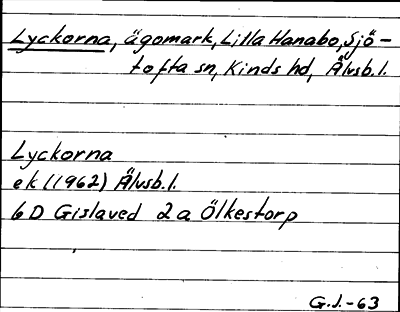 Lyckorna, ägomark, Lilla Hanabo, Sjö-
tofta sn, Kinds hd, Älvsb.l.
Lyckorna
ek (1962) Älvsb.l.
6D Gislaved 2a Ölkestorp
G.J.-63